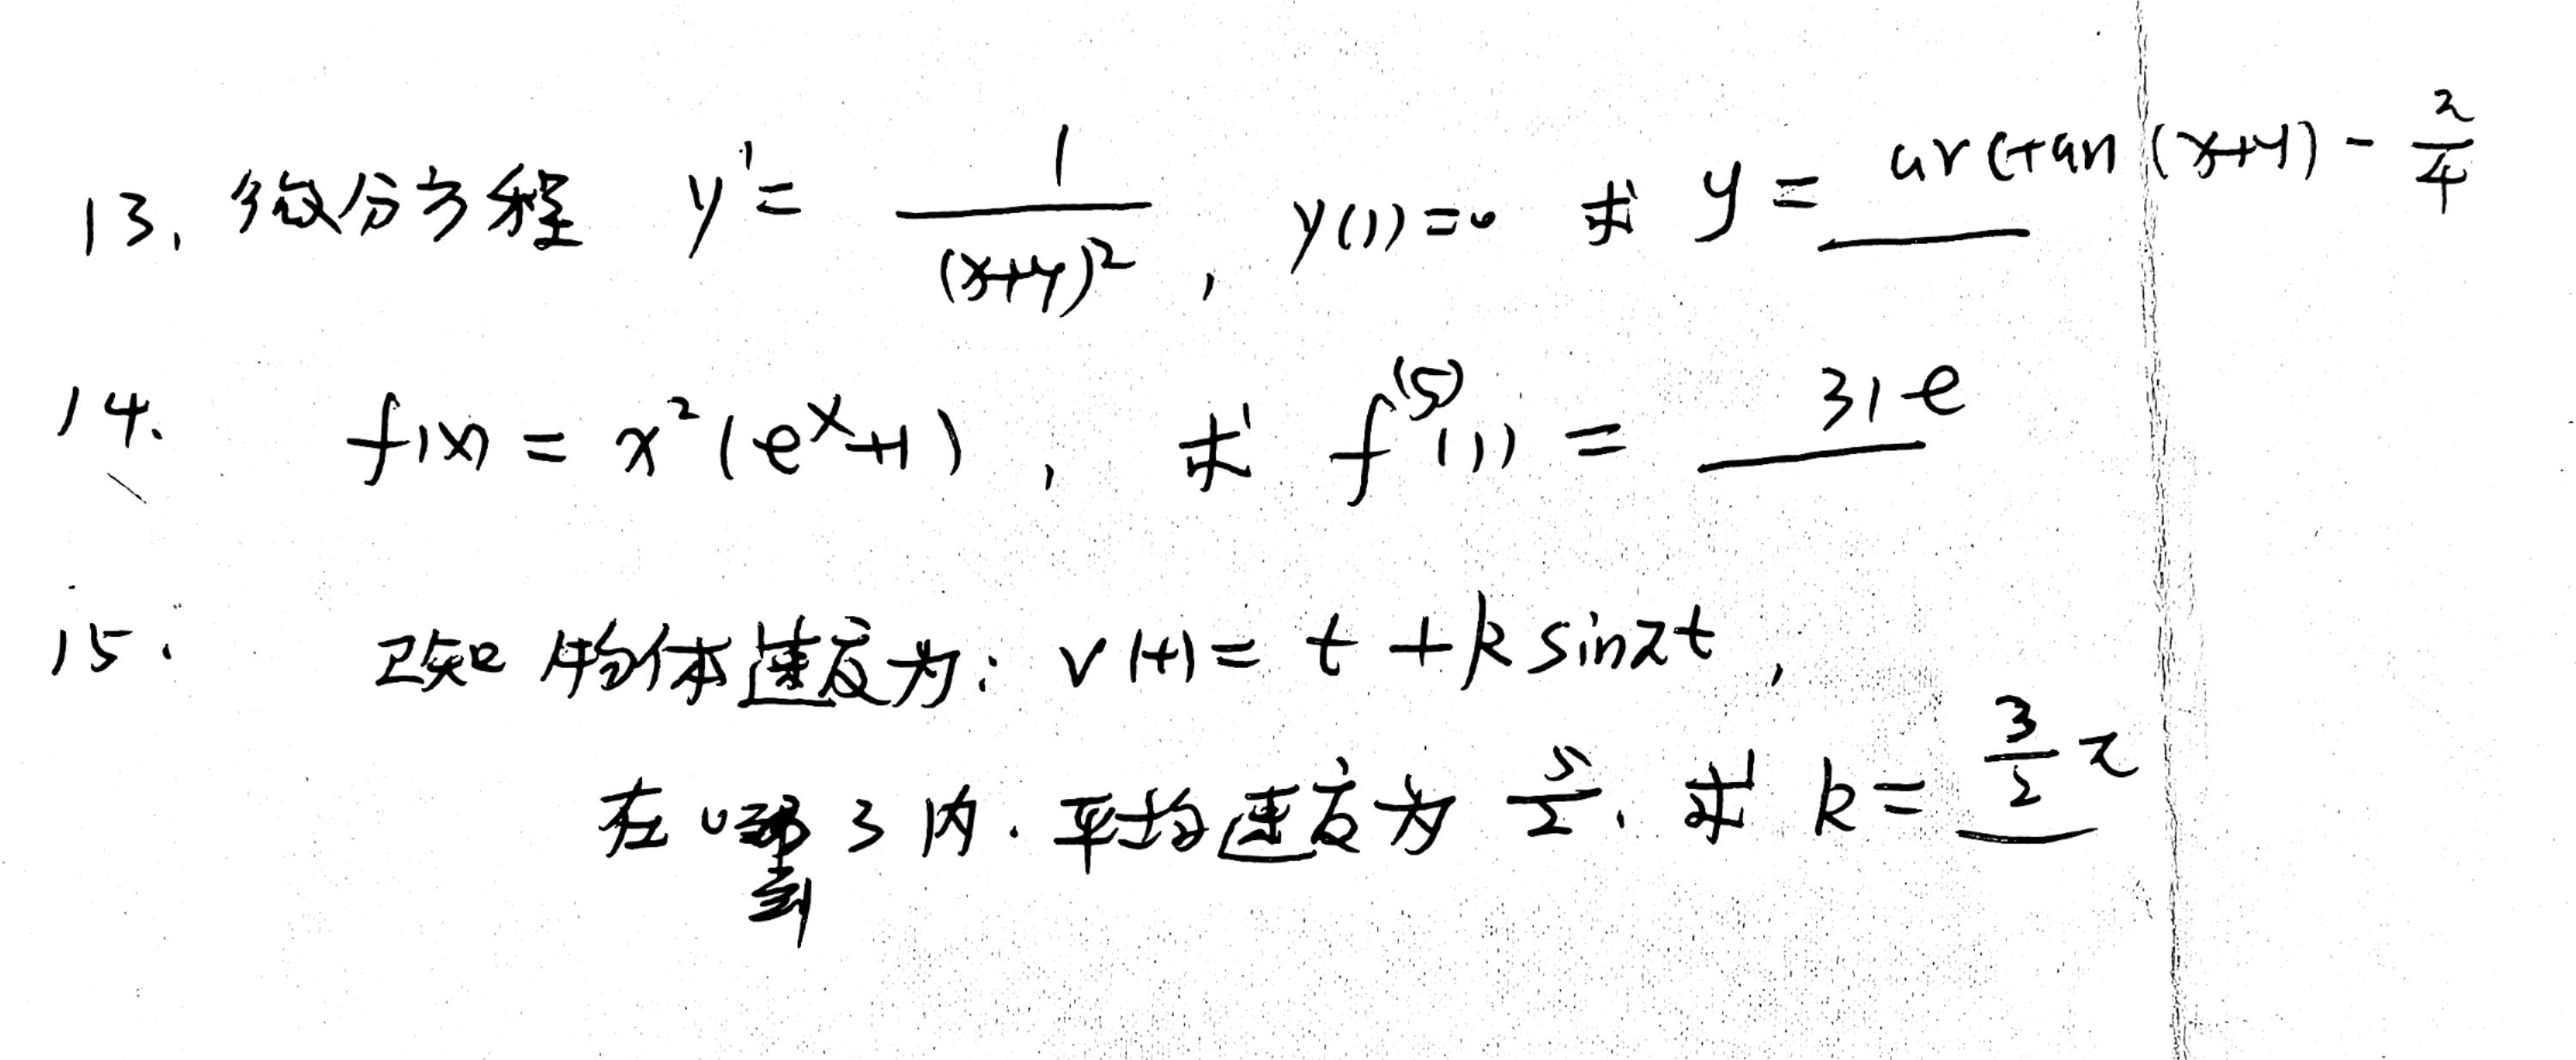 13. 微分方程 y' = 1/(x+y)², y(1)=0 求 y = arctan(x+y) - π/4
14. f(x) = x²(eˣ+1), 求 f⁽⁵⁾(1) = 31e
15. 已知物体速度为: v(t) = t + k sinπt,
在 0 到 3 内. 平均速度为 5/2. 求 k = 3/2 π